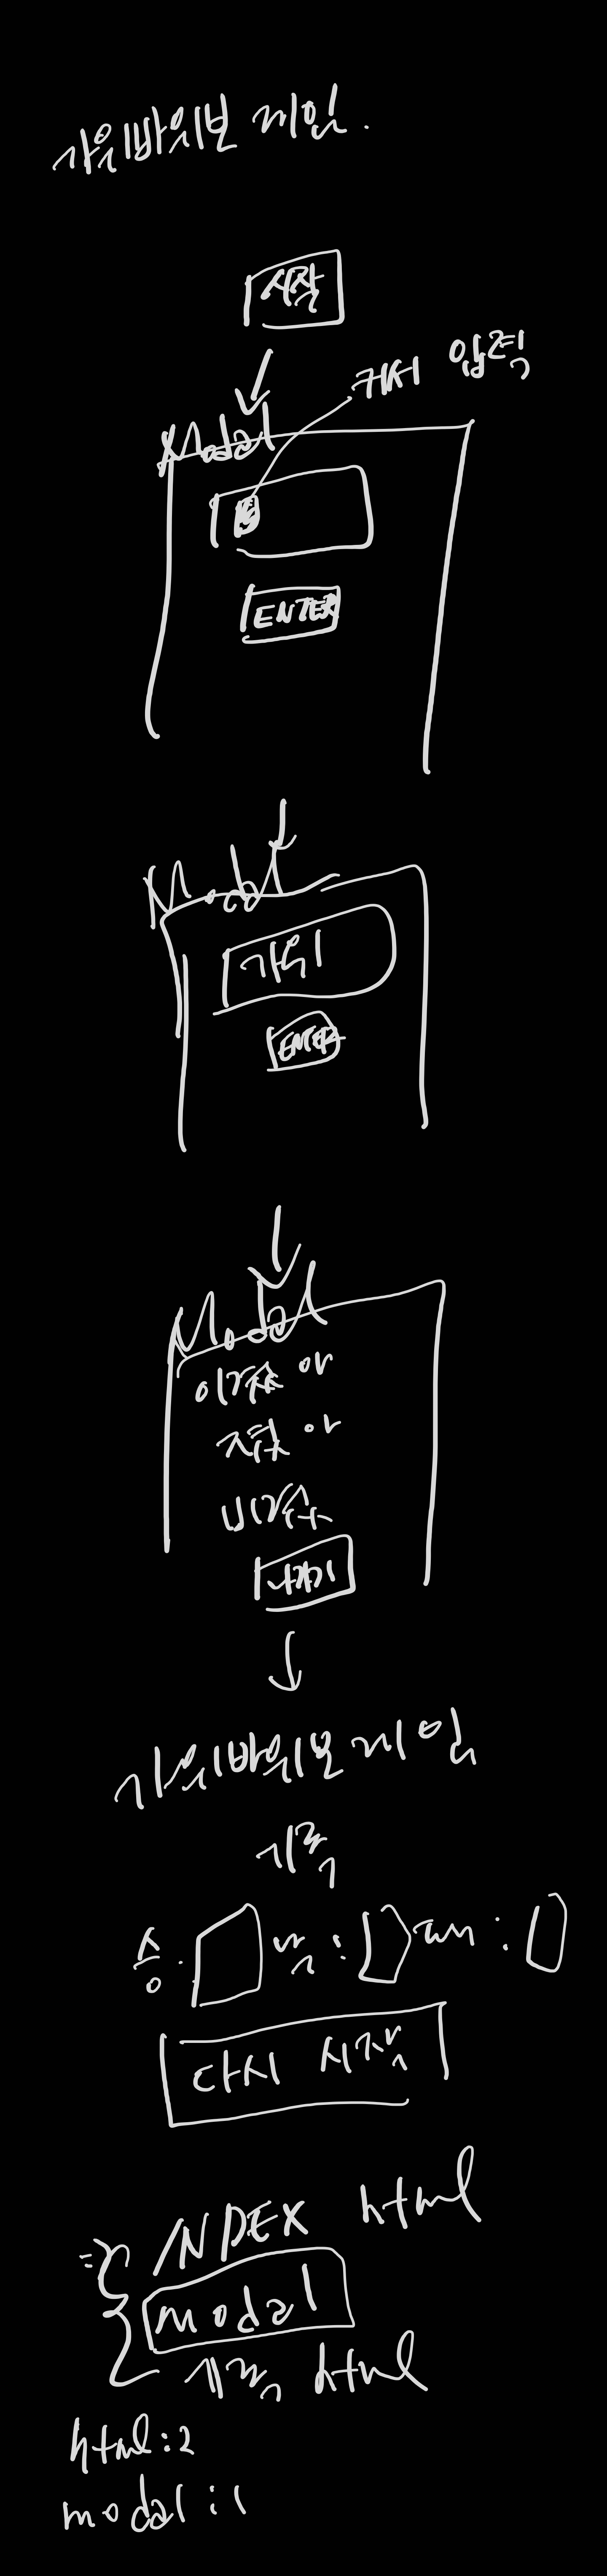 가위바위보 게임.
시작
커서 입력
Modal
ENTER
Modal
가위
ENTER
Modal
이겼슈 아
졌슈 아
비겼슈
나가기
가위바위보 게임
기록
승: 패: 무:
다시 시작
INDEX html
modal
기록 html
html:2
modal:1